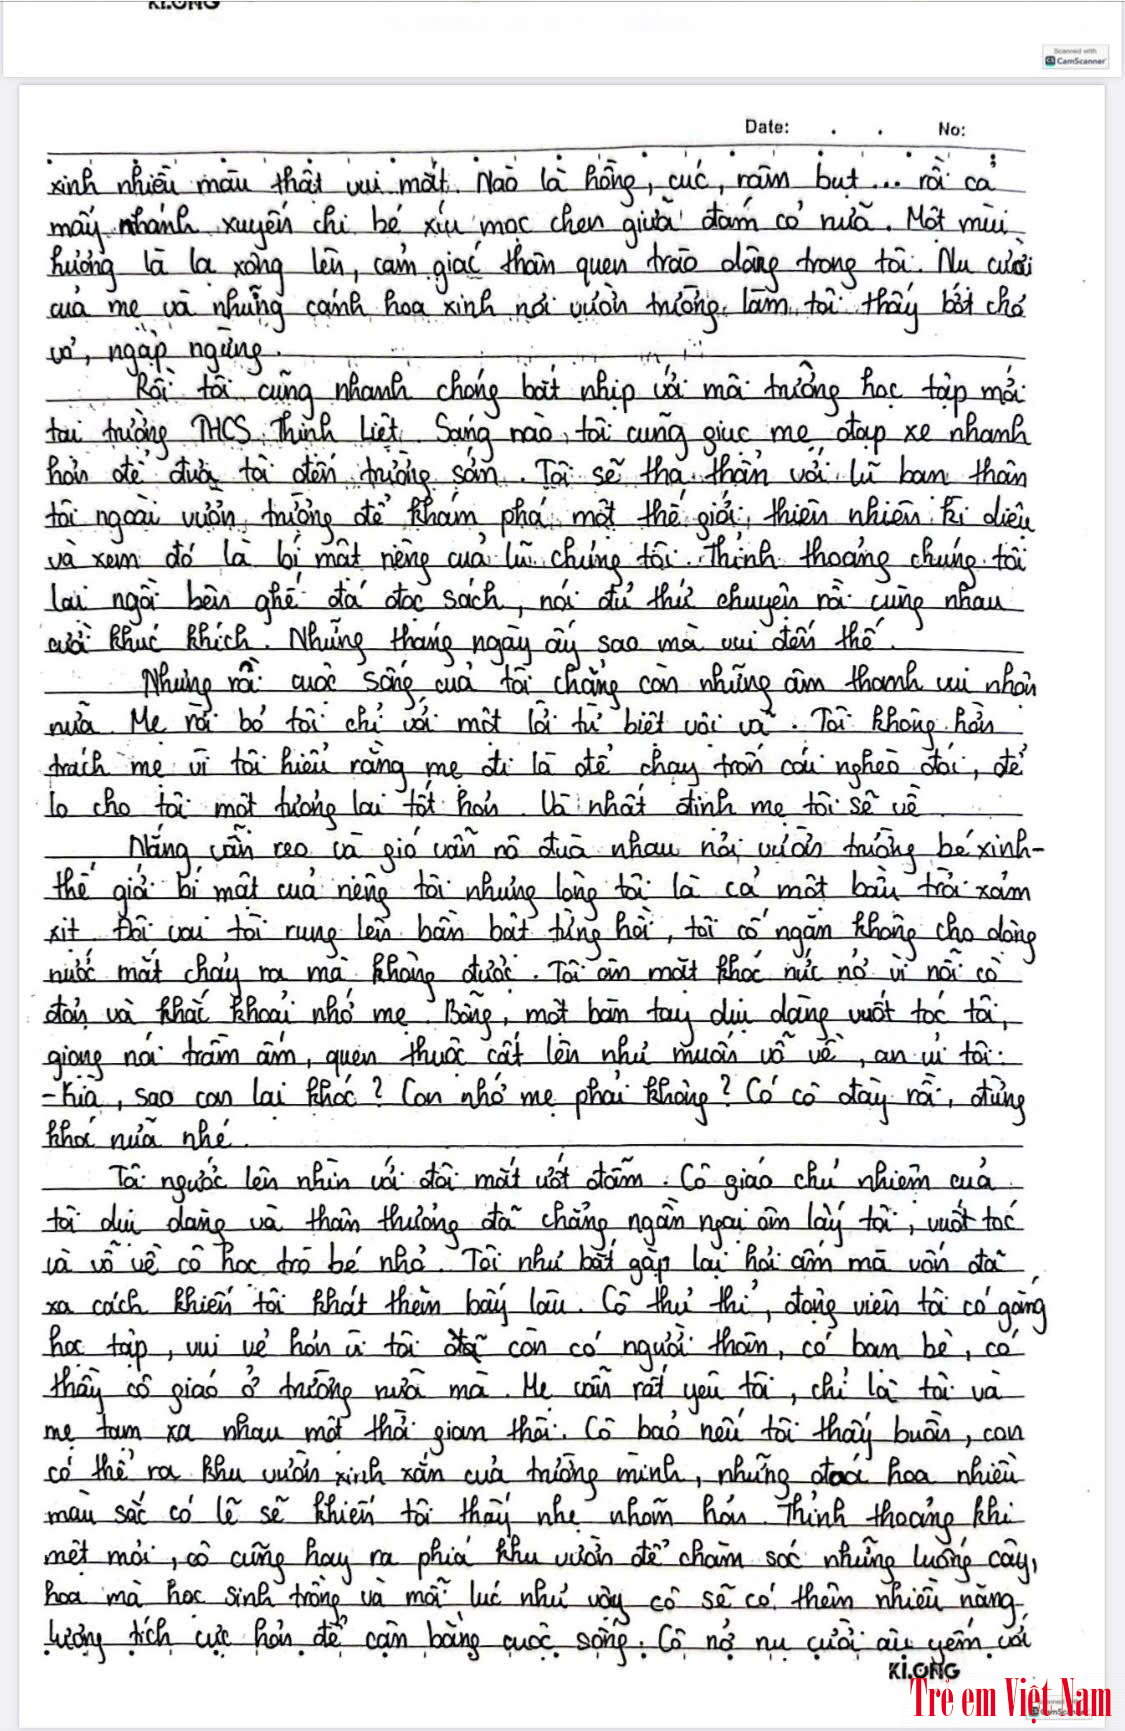 KI.ONG
Scanned with
CS CamScanner
Date: . . No:
xinh nhiều màu thật vui mắt. Nào là hồng, cúc, râm bụt... rồi cả
mấy nhánh xuyến chi bé xíu mọc chen giữa đám cỏ nữa. Một mùi
hương là lạ xông lên, cảm giác thân quen trào dâng trong tôi. Nụ cười
của mẹ và những cánh hoa xinh nơi vườn trường làm tôi thấy bớt chơ
vơ, ngập ngừng.
Rồi tôi cũng nhanh chóng bắt nhịp với môi trường học tập mới
tại trường THCS Thịnh Liệt. Sáng nào, tôi cũng giục mẹ đạp xe nhanh
hơn để đưa tôi đến trường sớm. Tôi sẽ tha thẩn với lũ bạn thân
tôi ngoài vườn trường để khám phá một thế giới thiên nhiên kì diệu
và xem đó là bí mật riêng của lũ chúng tôi. Thỉnh thoảng chúng tôi
lại ngồi bên ghế đá đọc sách, nói đủ thứ chuyện rồi cùng nhau
cười khúc khích. Những tháng ngày ấy sao mà vui đến thế.
Nhưng rồi cuộc sống của tôi chẳng còn những âm thanh vui nhộn
nữa. Mẹ rời bỏ tôi chỉ với một lời từ biệt vội vã. Tôi không hờn
trách mẹ vì tôi hiểu rằng mẹ đi là để chạy trốn cái nghèo đói, để
lo cho tôi một tương lai tốt hơn. Và nhất định mẹ tôi sẽ về
Nắng vẫn reo và gió vẫn nô đùa nhau nơi vườn trường bé xinh-
thế giới bí mật của riêng tôi nhưng lòng tôi là cả một bầu trời xám
xịt. Đôi vai tôi rung lên bần bật từng hồi, tôi cố ngăn không cho dòng
nước mắt chảy ra mà không được. Tôi ôm mặt khóc nức nở vì nỗi cô
đơn và khắc khoải nhớ mẹ. Bỗng, một bàn tay dịu dàng vuốt tóc tôi,
giọng nói trầm ấm, quen thuộc cất lên như muốn vỗ về, an ủi tôi:
- Kìa, sao con lại khóc? Con nhớ mẹ phải không? Có cô đây rồi, đừng
khóc nữa nhé.
Tôi ngước lên nhìn với đôi mắt ướt đẫm. Cô giáo chủ nhiệm của
tôi dịu dàng và thân thương đã chẳng ngần ngại ôm lấy tôi, vuốt tóc
và vỗ về cô học trò bé nhỏ. Tôi như bắt gặp lại hơi ấm mà vốn đã
xa cách khiến tôi khát thèm bấy lâu. Cô thủ thỉ, động viên tôi cố gắng
học tập, vui vẻ hơn vì tôi còn có người thân, có bạn bè, có
thầy cô giáo ở trường nữa mà. Mẹ vẫn rất yêu tôi, chỉ là tôi và
mẹ tạm xa nhau một thời gian thôi. Cô bảo nếu tôi thấy buồn, con
có thể ra khu vườn xinh xắn của trường mình, những đoá hoa nhiều
màu sắc có lẽ sẽ khiến tôi thấy nhẹ nhõm hơn. Thỉnh thoảng khi
mệt mỏi, cô cũng hay ra phía khu vườn để chăm sóc những luống cây,
hoa mà học sinh trồng và mỗi lúc như vậy cô sẽ có thêm nhiều năng
lượng tích cực hơn để cân bằng cuộc sống. Cô nở nụ cười âu yếm với
KI.ONG
Trẻ em Việt Nam